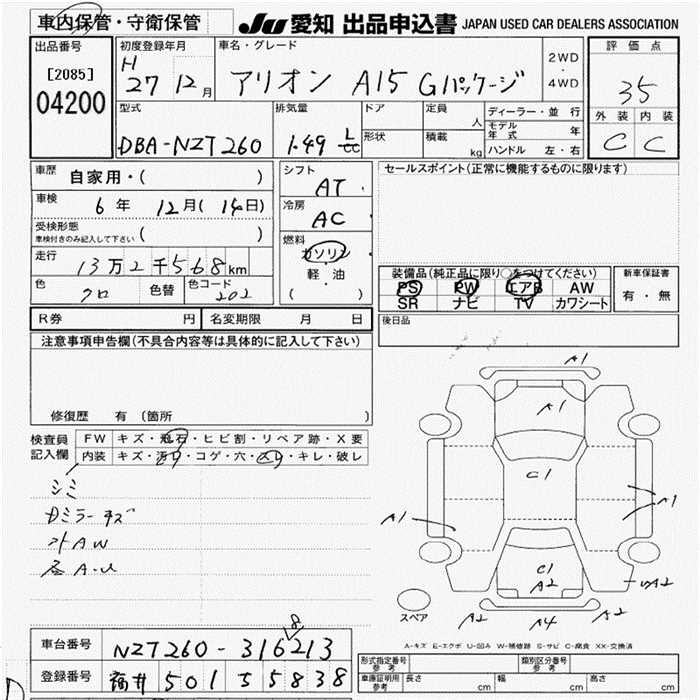 車内保管・守衛保管
JU 愛知 出品申込書 JAPAN USED CAR DEALERS ASSOCIATION
出品番号
[2085]
04200
初度登録年月
H 27 12月
車名・グレード
アリオン A15 Gパッケージ
2WD
・
4WD
評価点
35
外装 内装
C C
型式
DBA-NZT260
排気量
1.49 L
cc
ドア
形状
定員
人
積載
kg
ディーラー・並行
モデル年式 年
ハンドル 左・右
車歴 自家用・( )
車検 6年 12月(14日)
受検形態
車検付きのみ記入して下さい ( )
走行
13万2千568km
色 クロ 色替 色コード 202
シフト
AT
冷房
AC
燃料
ガソリン
軽・油
( )
セールスポイント(正常に機能するものに限ります)
装備品(純正品に限り○をつけてください)
PS PW エアB AW
SR ナビ TV カワシート
新車保証書
有・無
後日品
R券 円 名変期限 月 日
注意事項申告欄(不具合内容等は具体的に記入して下さい)
修復歴 有 (箇所 )
検査員
記入欄
FW キズ・飛石・ヒビ割・リペア跡・X要
内装 キズ・汚れ・コゲ・穴・スレ・キレ・破レ
シミ
Dミラーキズ
外AW
A1
A1
C1
A1
A1
C1
A2
A2
A2
A4
A2
スペア
A-キズ E-エクボ U-凹み W-補修跡 S-サビ C-腐食 XX-交換済
車台番号 NZT260-316213
8
登録番号 福井 501 5 5838
形式指定番号
参考
類別区分番号
参考
車庫証明用
参考
長さ cm 幅 cm 高さ cm
D